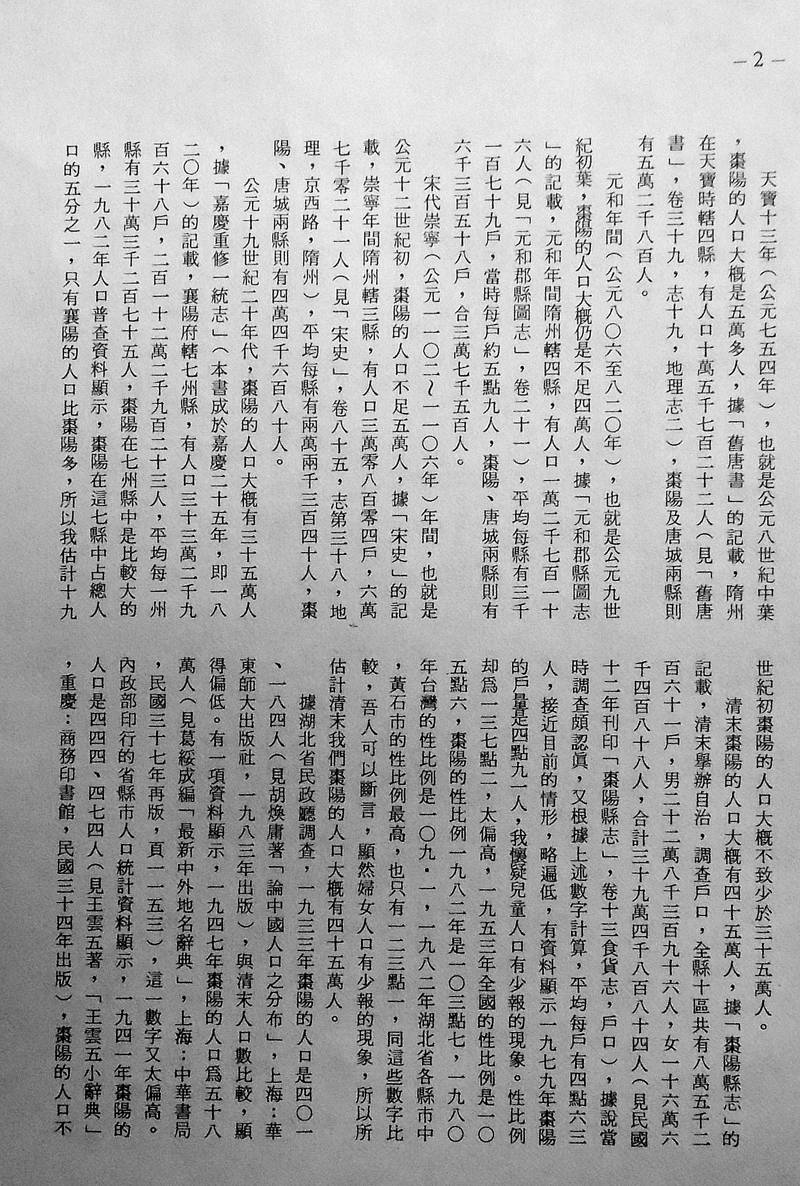 －2－
天寶十三年（公元七五四年），也就是公元八世紀中葉
，棗陽的人口大概是五萬多人，據「舊唐書」的記載，隋州
在天寶時轄四縣，有人口十萬五千七百二十二人（見「舊唐
書」，卷三十九，志十九，地理志二），棗陽及唐城兩縣則
有五萬二千八百人。
元和年間（公元八０六至八二０年），也就是公元九世
紀初葉，棗陽的人口大概仍是不足四萬人，據「元和郡縣圖志
」的記載，元和年間隋州轄四縣，有人口一萬二千七百一十
六人（見「元和郡縣圖志」，卷二十一），平均每縣有三千
一百七十九戶，當時每戶約五點九人，棗陽、唐城兩縣則有
六千三百五十八戶，合三萬七千五百人。
宋代崇寧（公元一一０二～一一０六年）年間，也就是
公元十二世紀初，棗陽的人口不足五萬人，據「宋史」的記
載，崇寧年間隋州轄三縣，有人口三萬零八百零四戶，六萬
七千零二十一人（見「宋史」，卷八十五，志第三十八，地
理，京西路，隋州），平均每縣有兩萬兩千三百四十人，棗
陽、唐城兩縣則有四萬四千六百八十人。
公元十九世紀二十年代，棗陽的人口大概有三十五萬人
，據「嘉慶重修一統志」（本書成於嘉慶二十五年，即一八
二０年）的記載，襄陽府轄七州縣，有人口三十三萬二千九
百六十八戶，二百一十二萬二千九百二十三人，平均每一州
縣有三十萬三千二百七十五人，棗陽在七州縣中是比較大的
縣，一九八二年人口普查資料顯示，棗陽在這七縣中占總人
口的五分之一，只有襄陽的人口比棗陽多，所以我估計十九
世紀初棗陽的人口大概不致少於三十五萬人。
清末棗陽的人口大概有四十五萬人，據「棗陽縣志」的
記載，清末舉辦自治，調查戶口，全縣十區共有八萬五千二
百六十一戶，男二十二萬八千三百九十六人，女一十六萬六
千四百八十八人，合計三十九萬四千八百八十四人（見民國
十二年刊印「棗陽縣志」，卷十三食貨志，戶口），據說當
時調查頗認眞，又根據上述數字計算，平均每戶有四點六三
人，接近目前的情形，略遍低，有資料顯示一九七九年棗陽
的戶量是四點九一人，我懷疑兒童人口有少報的現象。性比例
却為一三七點二，太偏高，一九五三年全國的性比例是一０
五點六，棗陽的性比例一九八二年是一０三點七，一九八０
年台灣的性比例是一０九·一，一九八二年湖北省各縣市中
，黃石市的性比例最高，也只有一二三點一，同這些數字比
較，吾人可以斷言，顯然婦女人口有少報的現象，所以所
估計清末我們棗陽的人口大概有四十五萬人。
據湖北省民政廳調查，一九三三年棗陽的人口是四０一
、一八四人（見胡煥庸著「論中國人口之分布」，上海：華
東師大出版社，一九八三年出版），與清末人口數比較，顯
得偏低。有一項資料顯示，一九四七年棗陽的人口為五十八
萬人（見葛綏成編「最新中外地名辭典」，上海：中華書局
，民國三十七年再版，頁一一五三），這一數字又太偏高。
內政部印行的省縣市人口統計資料顯示，一九四一年棗陽的
人口是四四四、四七四人（見王雲五著，「王雲五小辭典」
，重慶：商務印書館，民國三十四年出版），棗陽的人口不